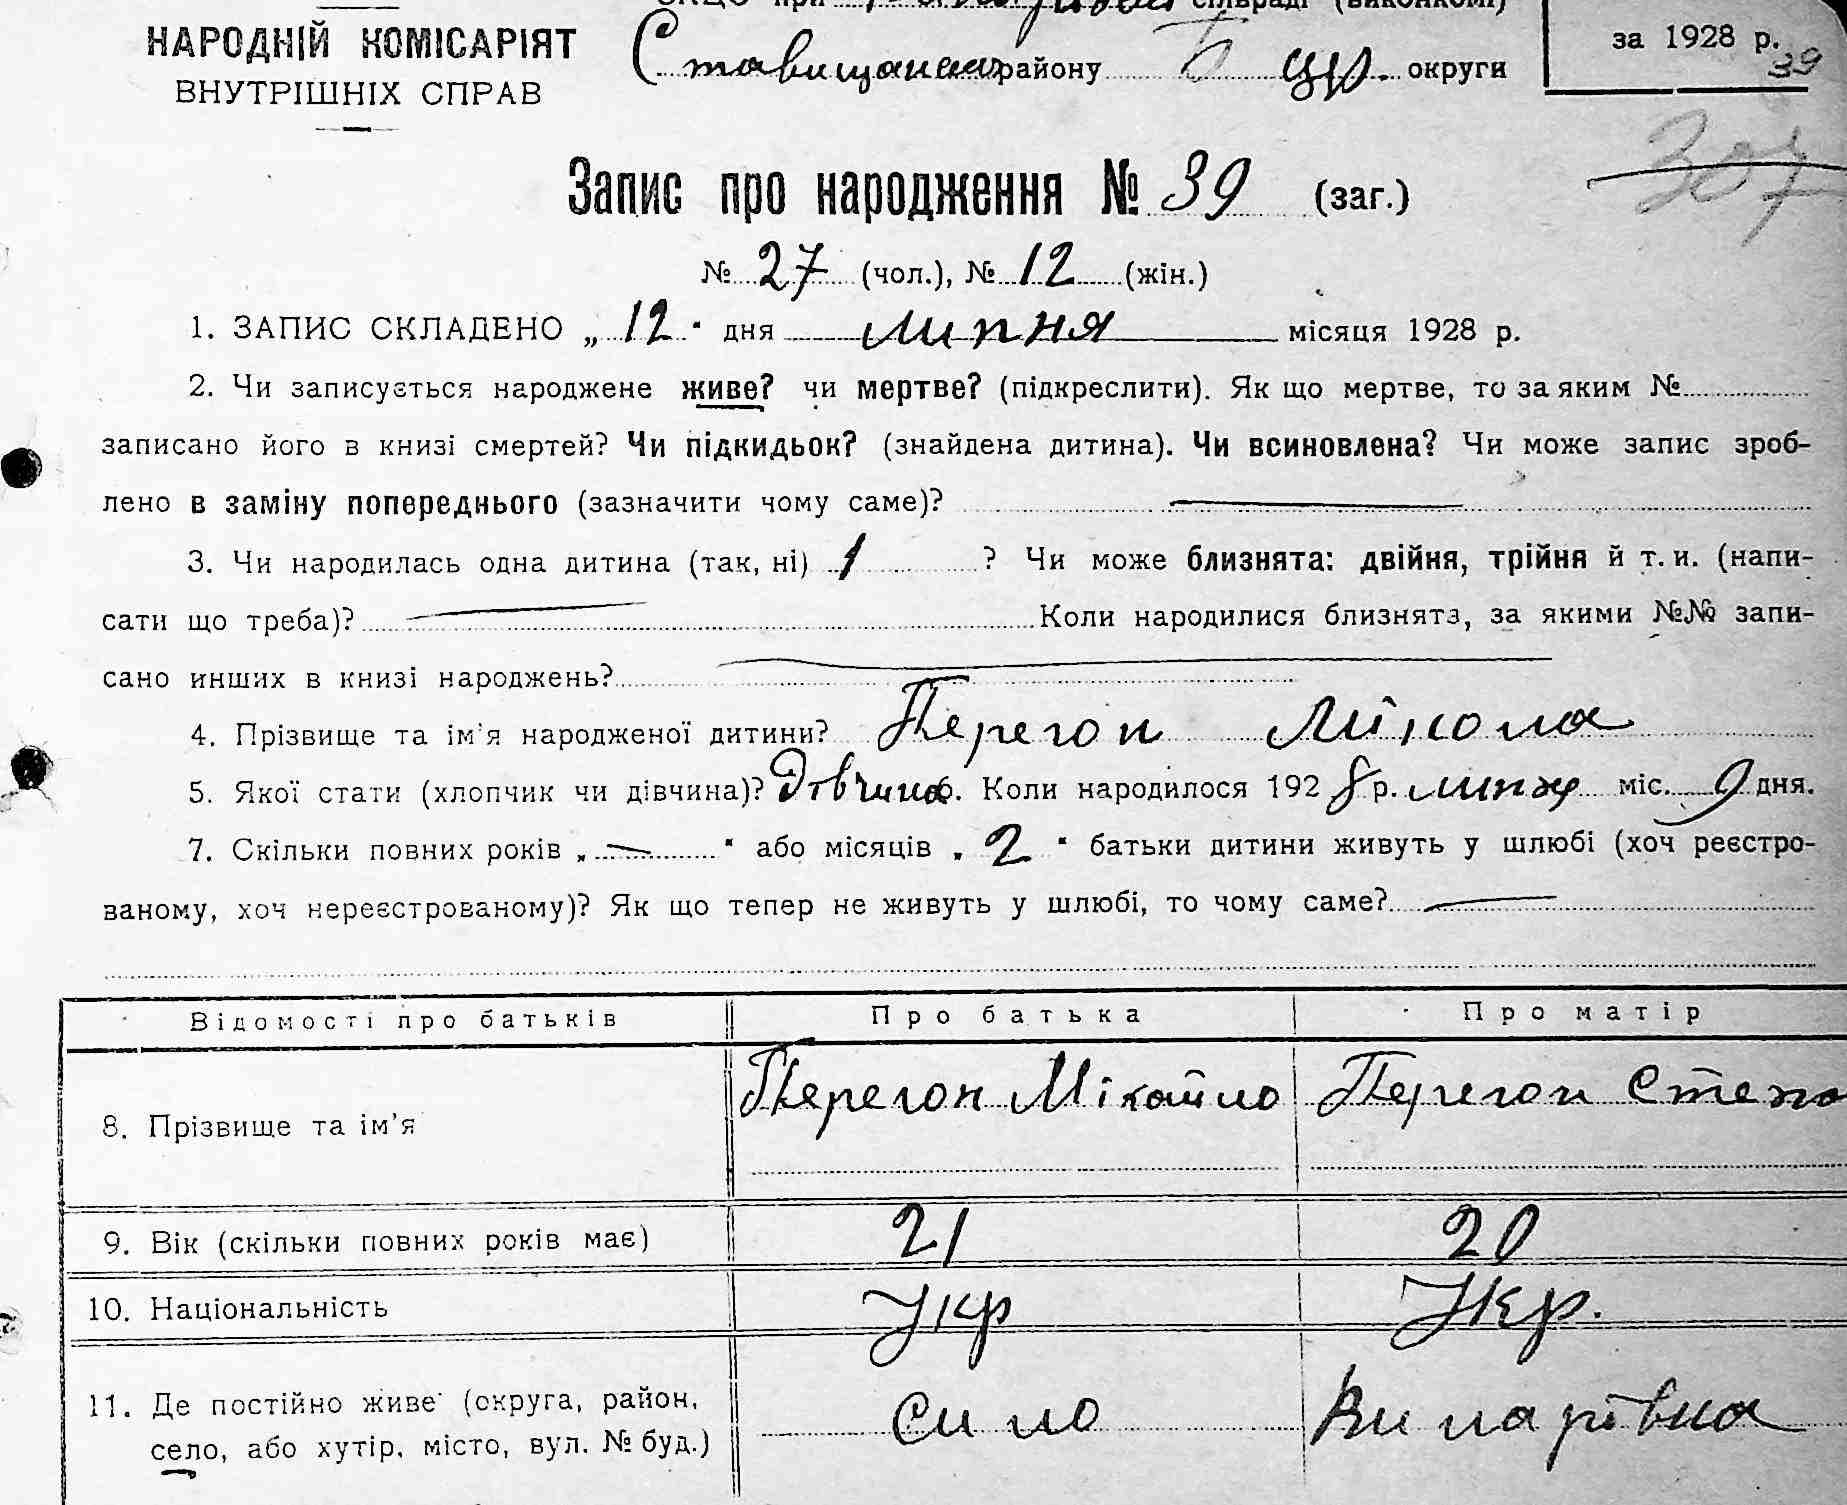 при сільраді (виконкомі)
НАРОДНІЙ КОМІСАРІЯТ
ВНУТРІШНІХ СПРАВ
району Б Цер. округи
за 1928 р.
39
307
Запис про народження № 39 (заг.)
№ 27 (чол.), № 12 (жін.)
1. ЗАПИС СКЛАДЕНО „ 12 " дня липня місяця 1928 р.
2. Чи записується народжене живе? чи мертве? (підкреслити). Як що мертве, то за яким №
записано його в книзі смертей? Чи підкидьок? (знайдена дитина). Чи всиновлена? Чи може запис зроб-
лено в заміну попереднього (зазначити чому саме)?
3. Чи народилась одна дитина (так, ні) 1 ? Чи може близнята: двійня, трійня й т. и. (напи-
сати що треба)? Коли народилися близнята, за якими №№ запи-
сано инших в книзі народжень?
4. Прізвище та ім'я народженої дитини? Перегон Мікола
5. Якої стати (хлопчик чи дівчина)? 6. Коли народилося 1928 р. липня міс. 9 дня.
7. Скільки повних років „ — " або місяців „ 2 " батьки дитини живуть у шлюбі (хоч реєстро-
ваному, хоч нереєстрованому)? Як що тепер не живуть у шлюбі, то чому саме?
Відомості про батьків Про батька Про матір
8. Прізвище та ім'я Перегон Міхайло Перегон
9. Вік (скільки повних років має) 21 20
10. Національність Укр Укр.
11. Де постійно живе (округа, район,
село, або хутір, місто, вул. № буд.) Сило Винарівка